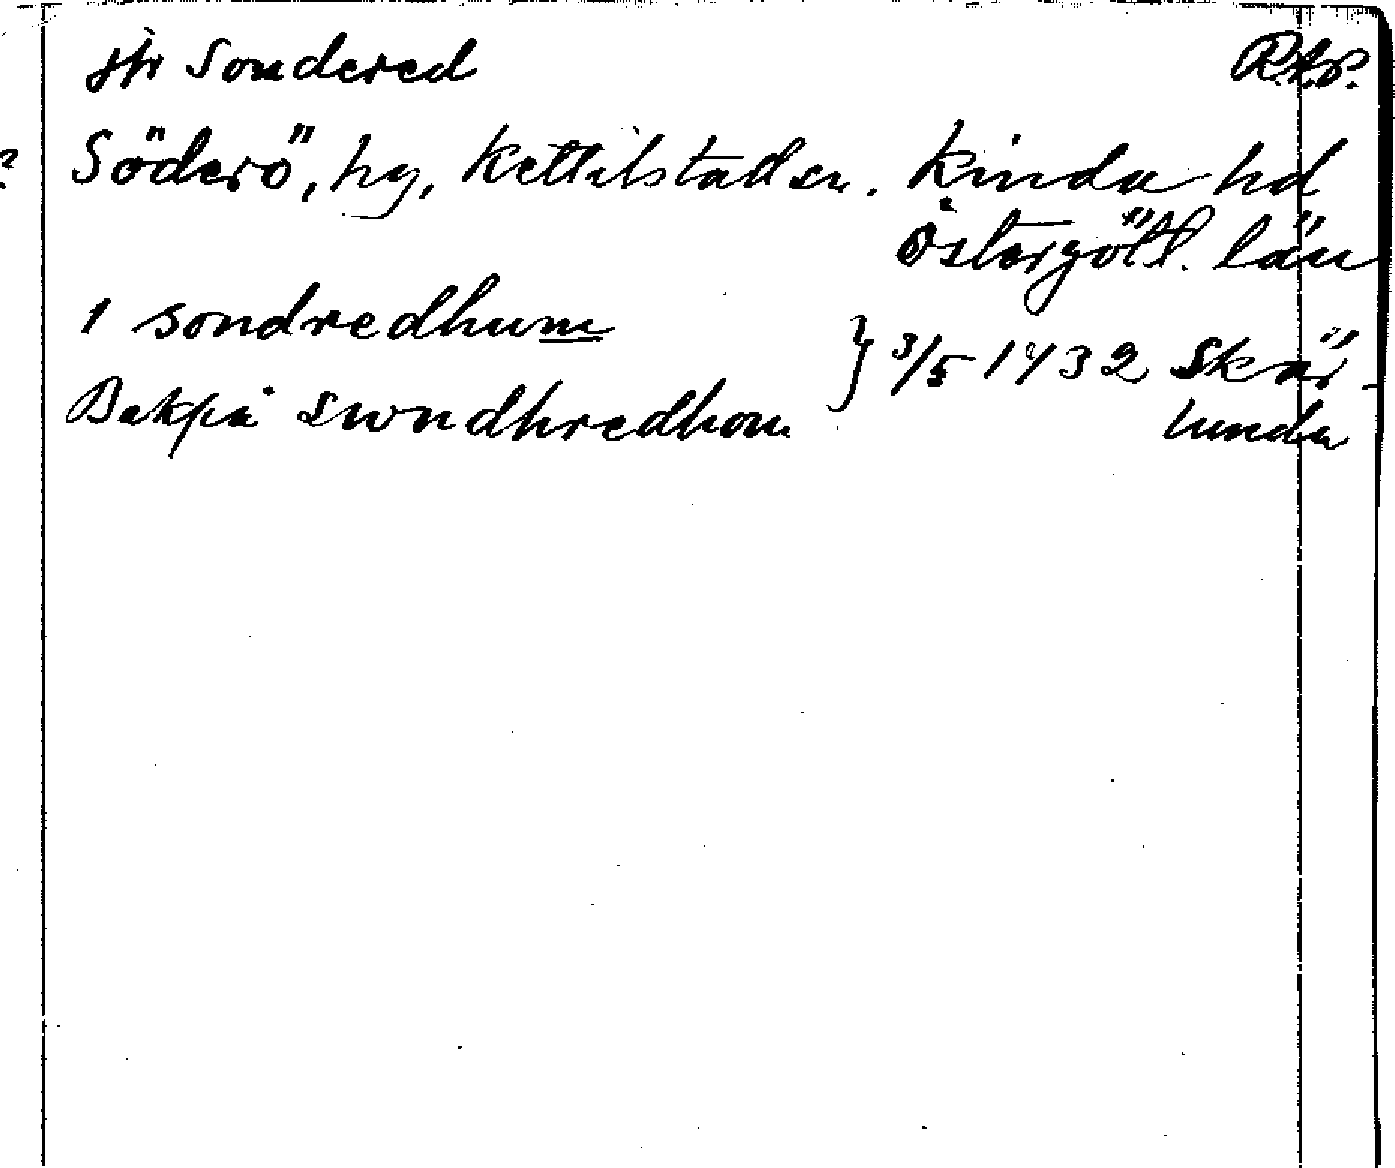 jfr Sondered R.A.P.
? Söderö, hg, Kettilstad sn. Kinda hd
Östergötl. län
1 sondredhum } 3/5 1432 Skär-
Bakpå swndhredhom lunda